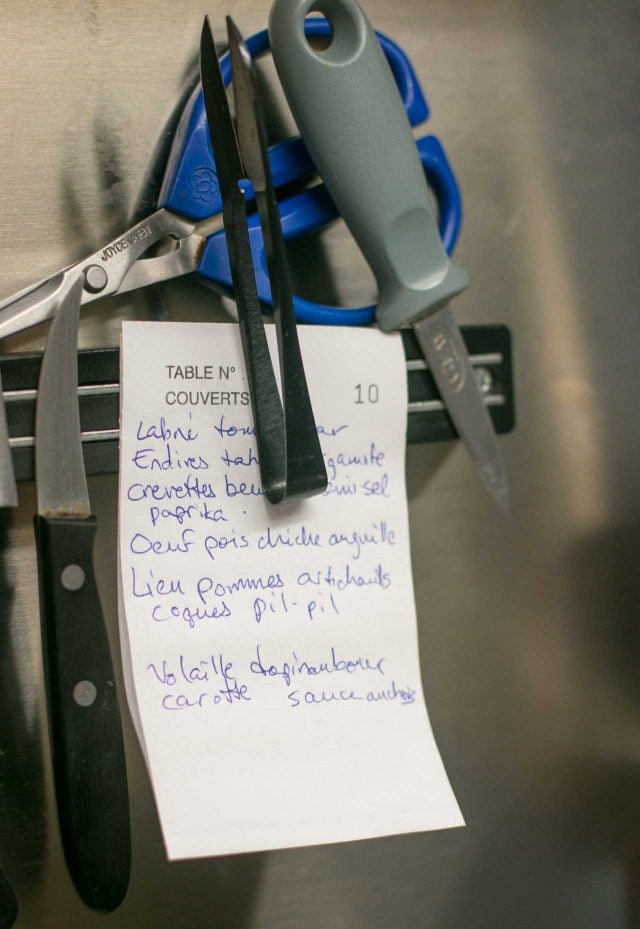 JOYCE CHEN
TABLE N°
COUVERTS
10
Labné
Endives
crevettes sel
paprika.
Oeuf pois chiche anguille
Lieu pommes artichauts
coques pil-pil
Volaille topinambour
carotte sauce anchois